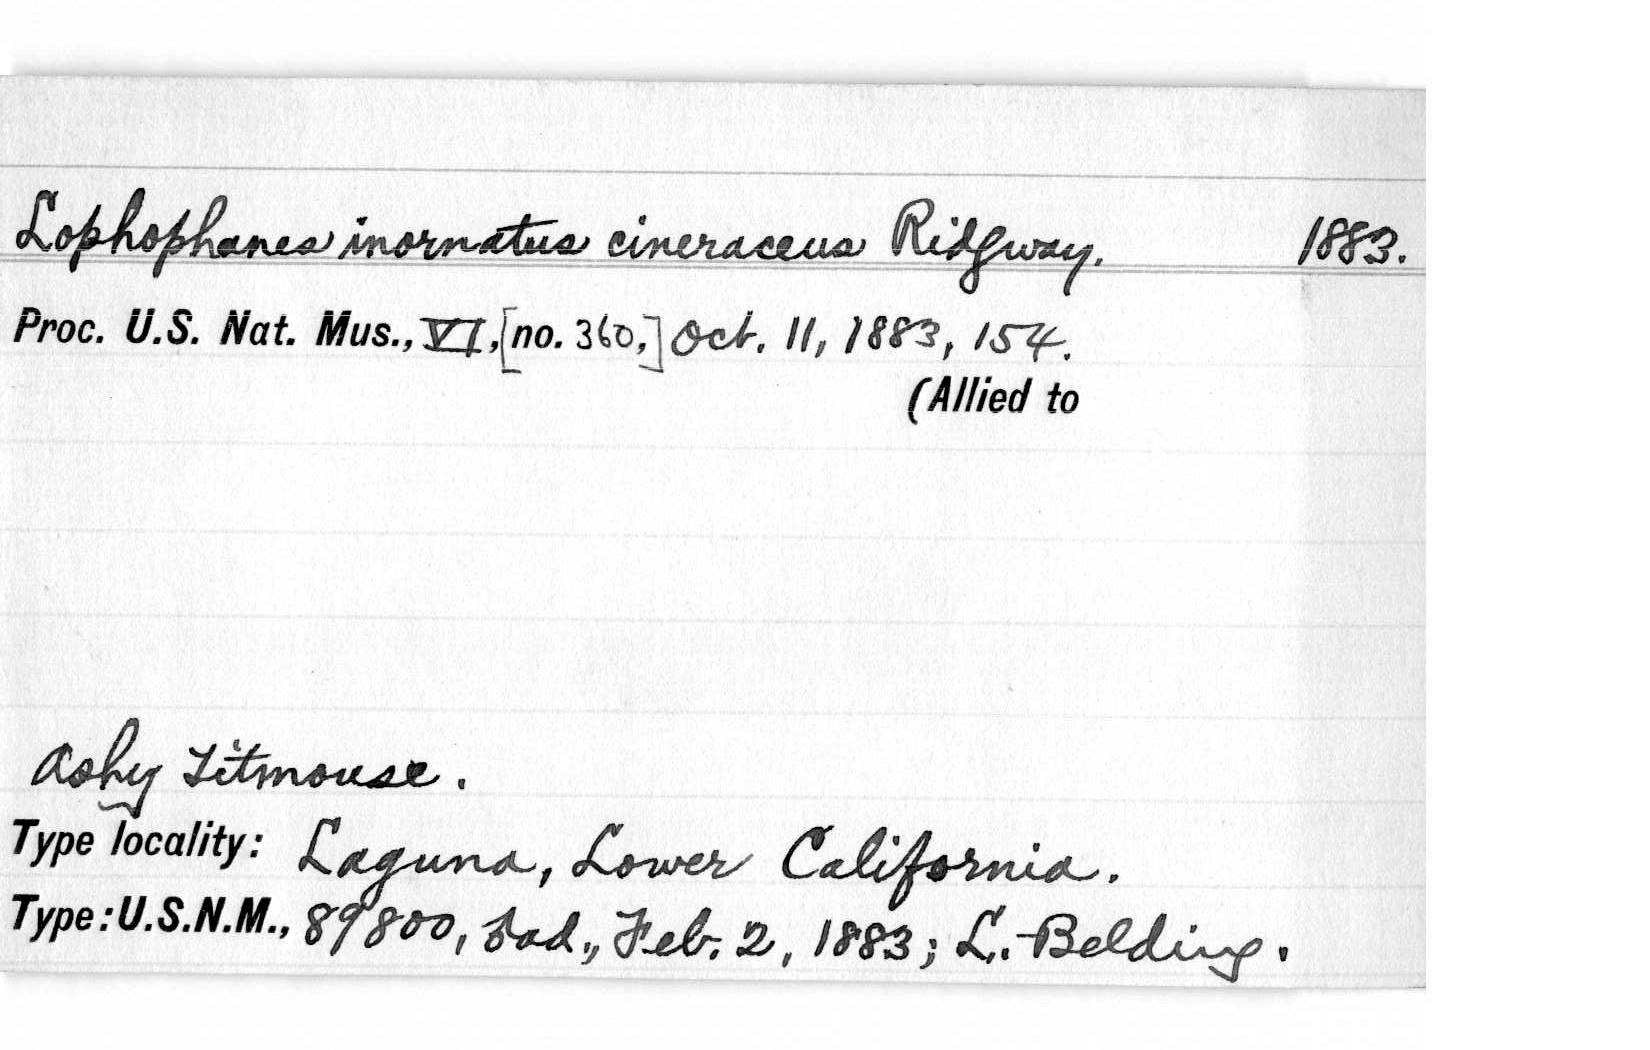 Lophophanes inornatus cineraceus Ridgway. 1883.
Proc. U.S. Nat. Mus., VI, [no. 360,] Oct. 11, 1883, 154.
(Allied to
Ashy Titmouse.
Type locality: Laguna, Lower California.
Type: U.S.N.M., 89800, ♂ ad., Feb. 2, 1883; L. Belding.